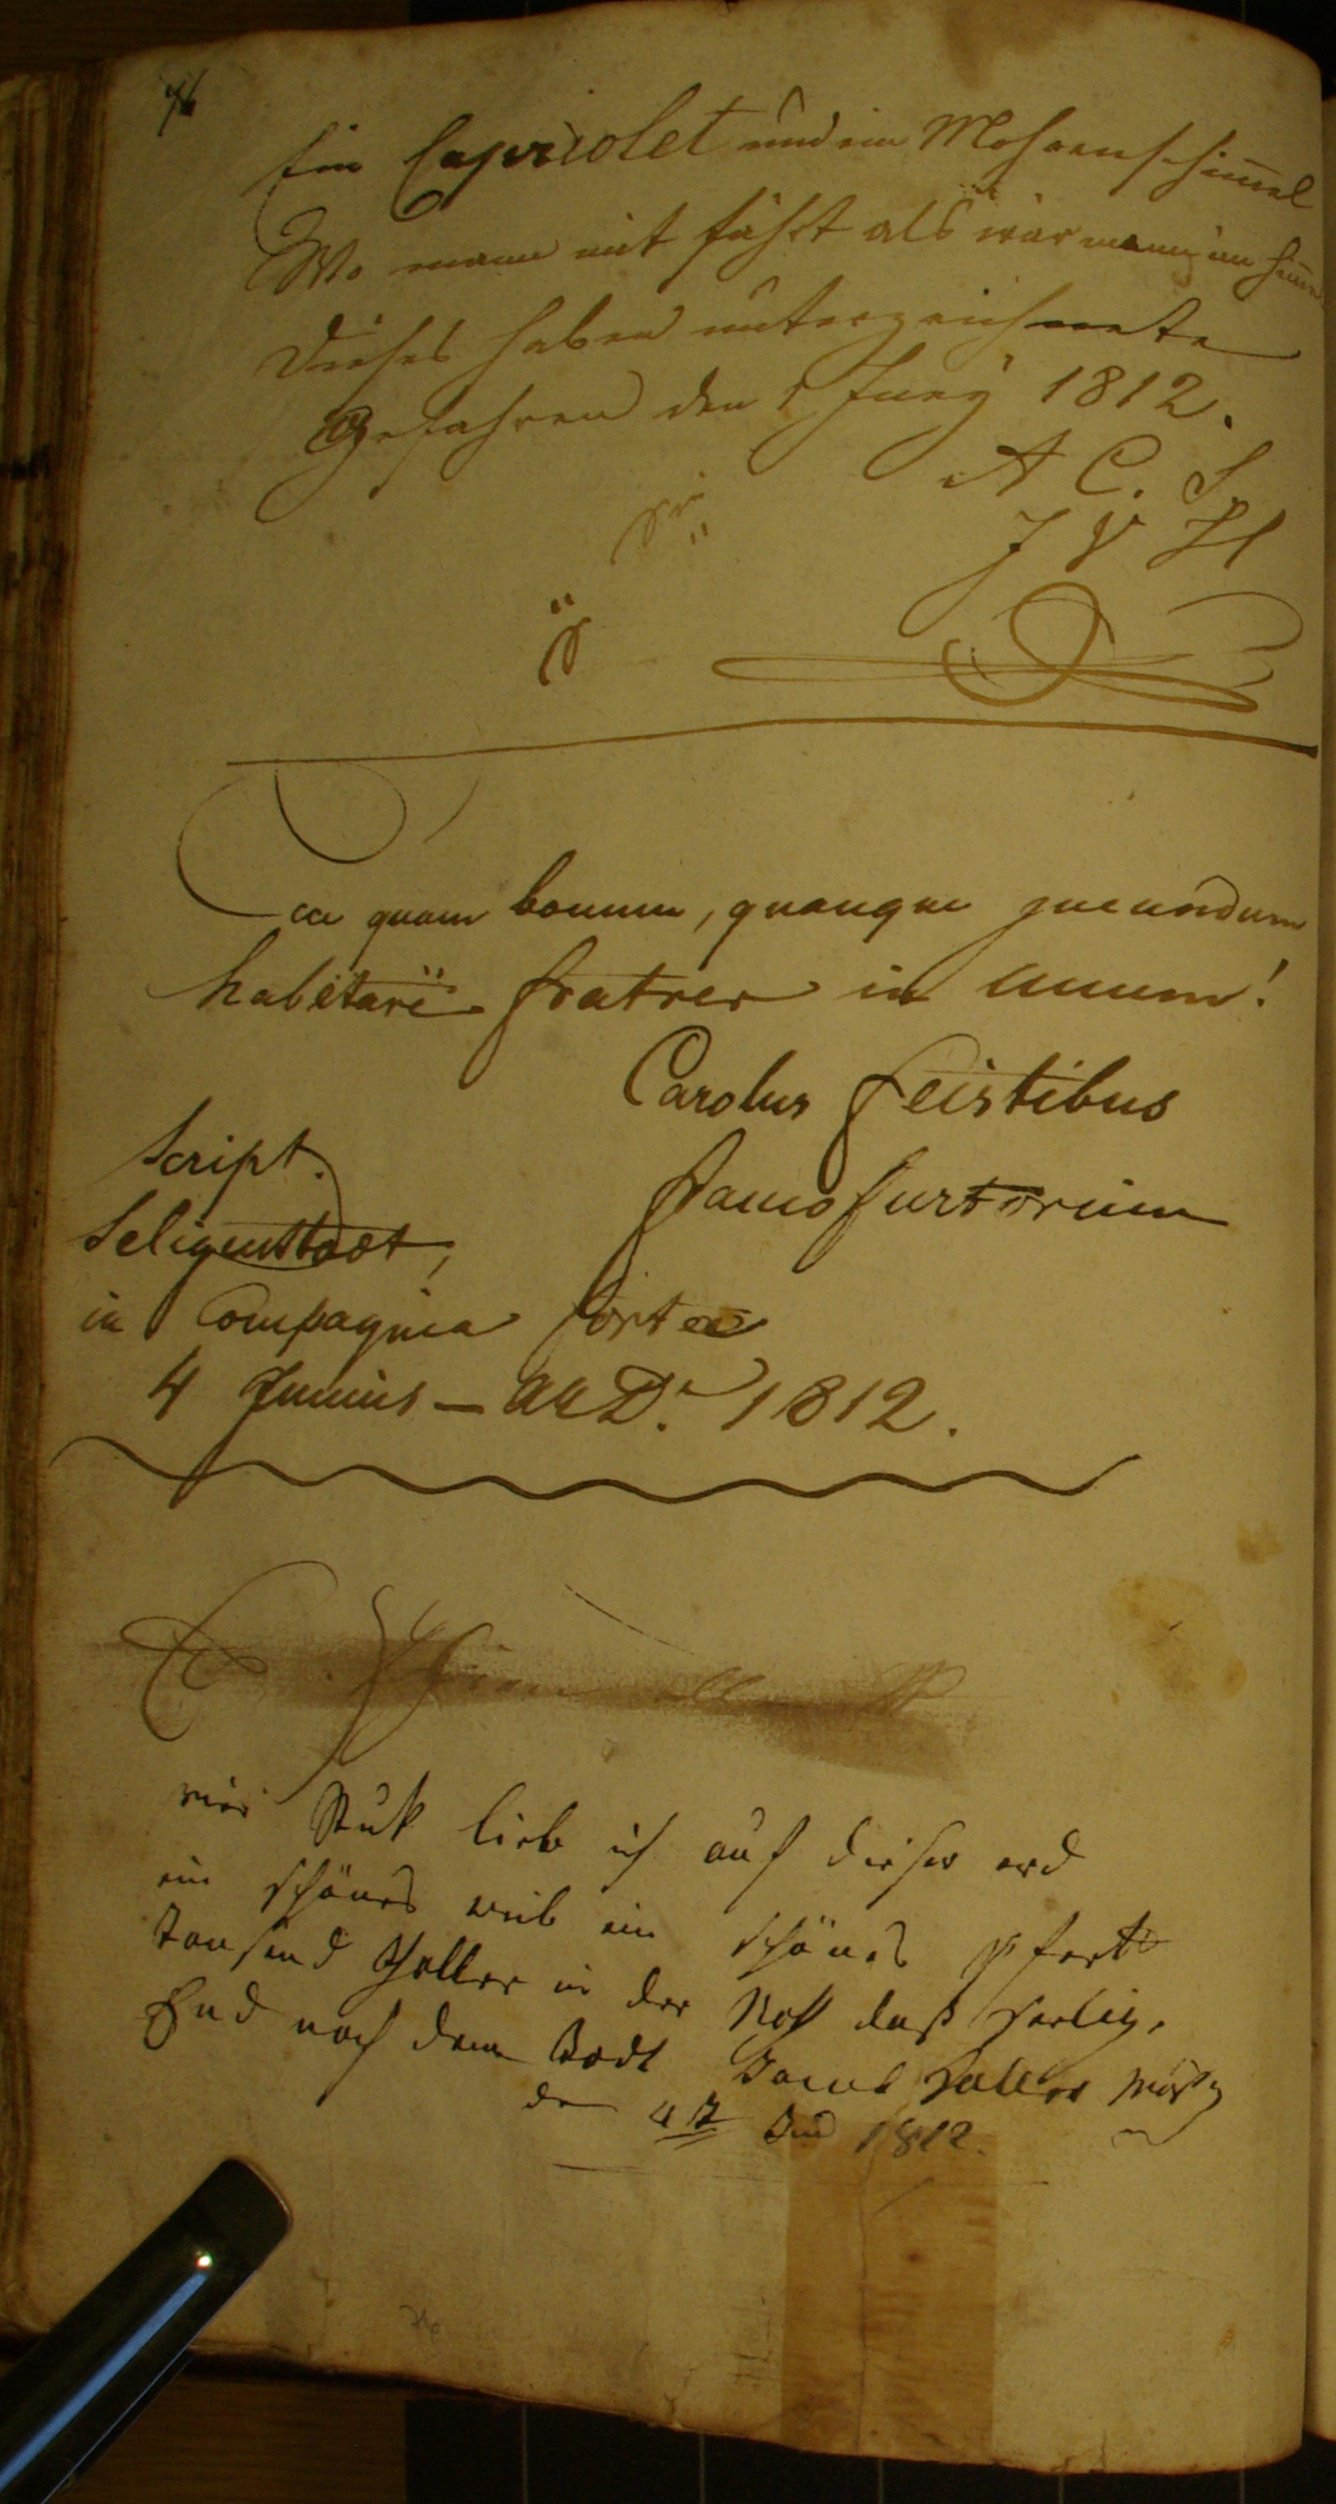 76
Ein Capriolet und ein Mohrenschim̄el
Wo mann mit fährt als wär mann im Him̄el
Dieses haben unterzeichnete
Gefahren den 1 Juny 1812.
A C. S
J V H
Ecce quam bonum, quamque jucundum
habitare fratres in unum!
Carolus Feistibus
Francofurtorum
Script.
Seligenstadt,
in Compagnia
4 Junius – A D. 1812.
vier Stuk lieb ich auf dieser erd
ein schönes weib ein schönes pfert
Tausend Thaller in der Noth daß Heelig.
End nach dem Todt Haller
den 4 t Jud 1812.